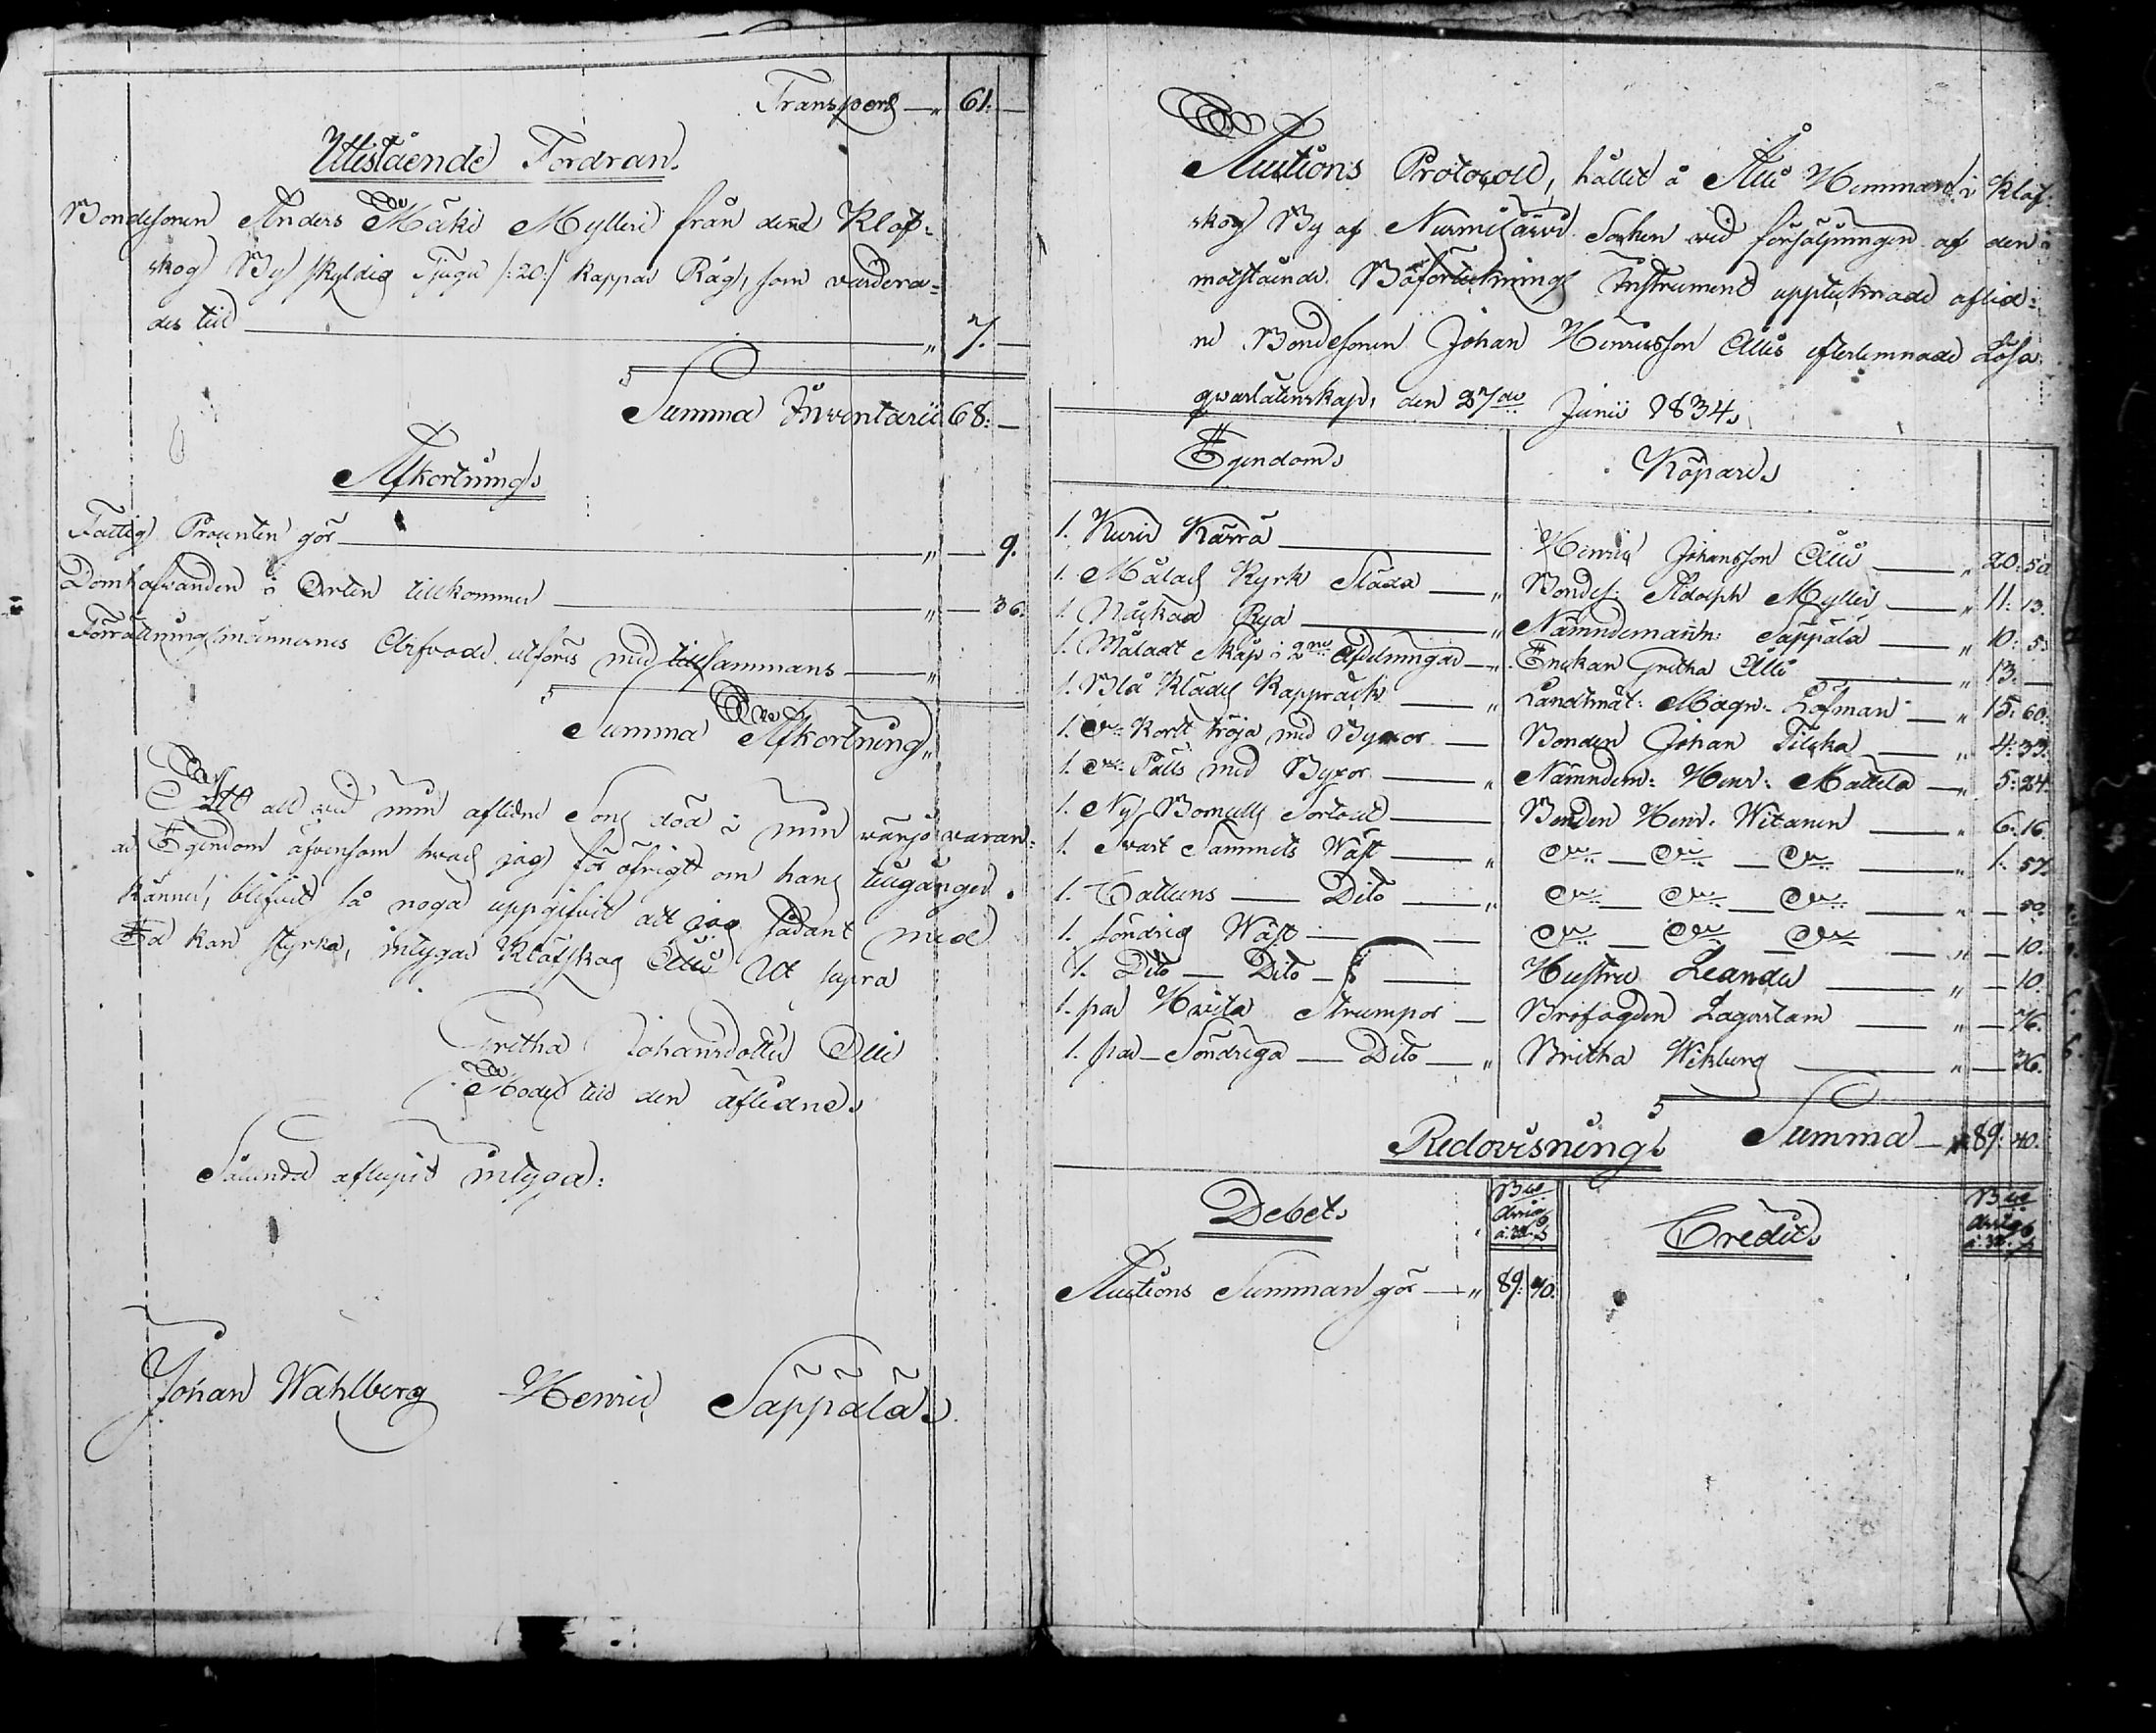 Transport — " 61. —
Utestående Fordran.
Bondesonen Anders Mäki Mylleri från denna Klöf-
skog By skyldig Tjugu /:20:/ kappar Råg, som värdera-
des till — " 7. —
Summa Inventarii 68. —
Afkortning.
Fattig Procenten gör — " — 9.
Domhafvanden i Orten tillkommer — " — 36.
Förrättningsmännernes Arfvode utföres med tillsammans — "
Summa Afkortning "
Att all vid min aflidne Sons död i min värjo varan-
de Egendom äfvensom hvad jag för öfrigt om hans tillgångar
känner, blifvit så noga uppgifvit att jag sådant med
Ed kan styrka, intygar Klöfskog Alli Ut supra
Gretha Johansdotter Alli
Moder till den aflidne.
Sålunda aflupit intyga:
Johan Wahlberg Henric Sappala.
Auctions Protocoll, hållet å Alli Hemman i Klöf-
skog By af Nurmijärvi Socken vid försäljningen af den i
motstående Boförtecknings Instrument upptecknade aflid-
ne Bondesonen Johan Henricsson Allis efterlemnade Lösa
qvarlåtenskap, den 27de Junii 1834.
Egendom. Köpare.
1. Kurir Kärra — Henric Johansson Alli — " 20: 50
1. Målad Kyrk Släda — " Bondes: Adolph Mylleri — " 11: 13.
1. Nuckad Rya — " Nämndemann: Sappala — " 10: 5.
1. Måladt Skåp i 2ne Afdelningar — " Enckan Gretha Alli — " 13. —
1. Blå Klädes Kapprock — " Landtmät: Magn: Löfman — " 15: 60.
1. Do Kort tröja med Byxor — Bonden Johan Tilcka — " 4: 33.
1. Do Päls med Byxor — " Nämndem: Henr: Mattila — " 5: 24.
1. Ny Bomulls Sortout — Bonden Henr. Witanen — " 6: 16.
1. Svart Sammets Wäst — " Do — Do — Do — " 1. 57.
1. Cattuns — Dito — " Do — Do — Do — " — 50.
1. söndrig Wäst — Do — Do — Do — " — 10.
1. Dito — Dito — Hustru Leander — " — 10.
1. par Hvita Strumpor — Brofogden Lagerstam — " — 76.
1. par — Söndriga — Dito — " Britha Wikberg — " — 36.
Summa — 89: 40.
Redovisning.
Debet. Credit.
Auctions Summan gör — " 89: 40.